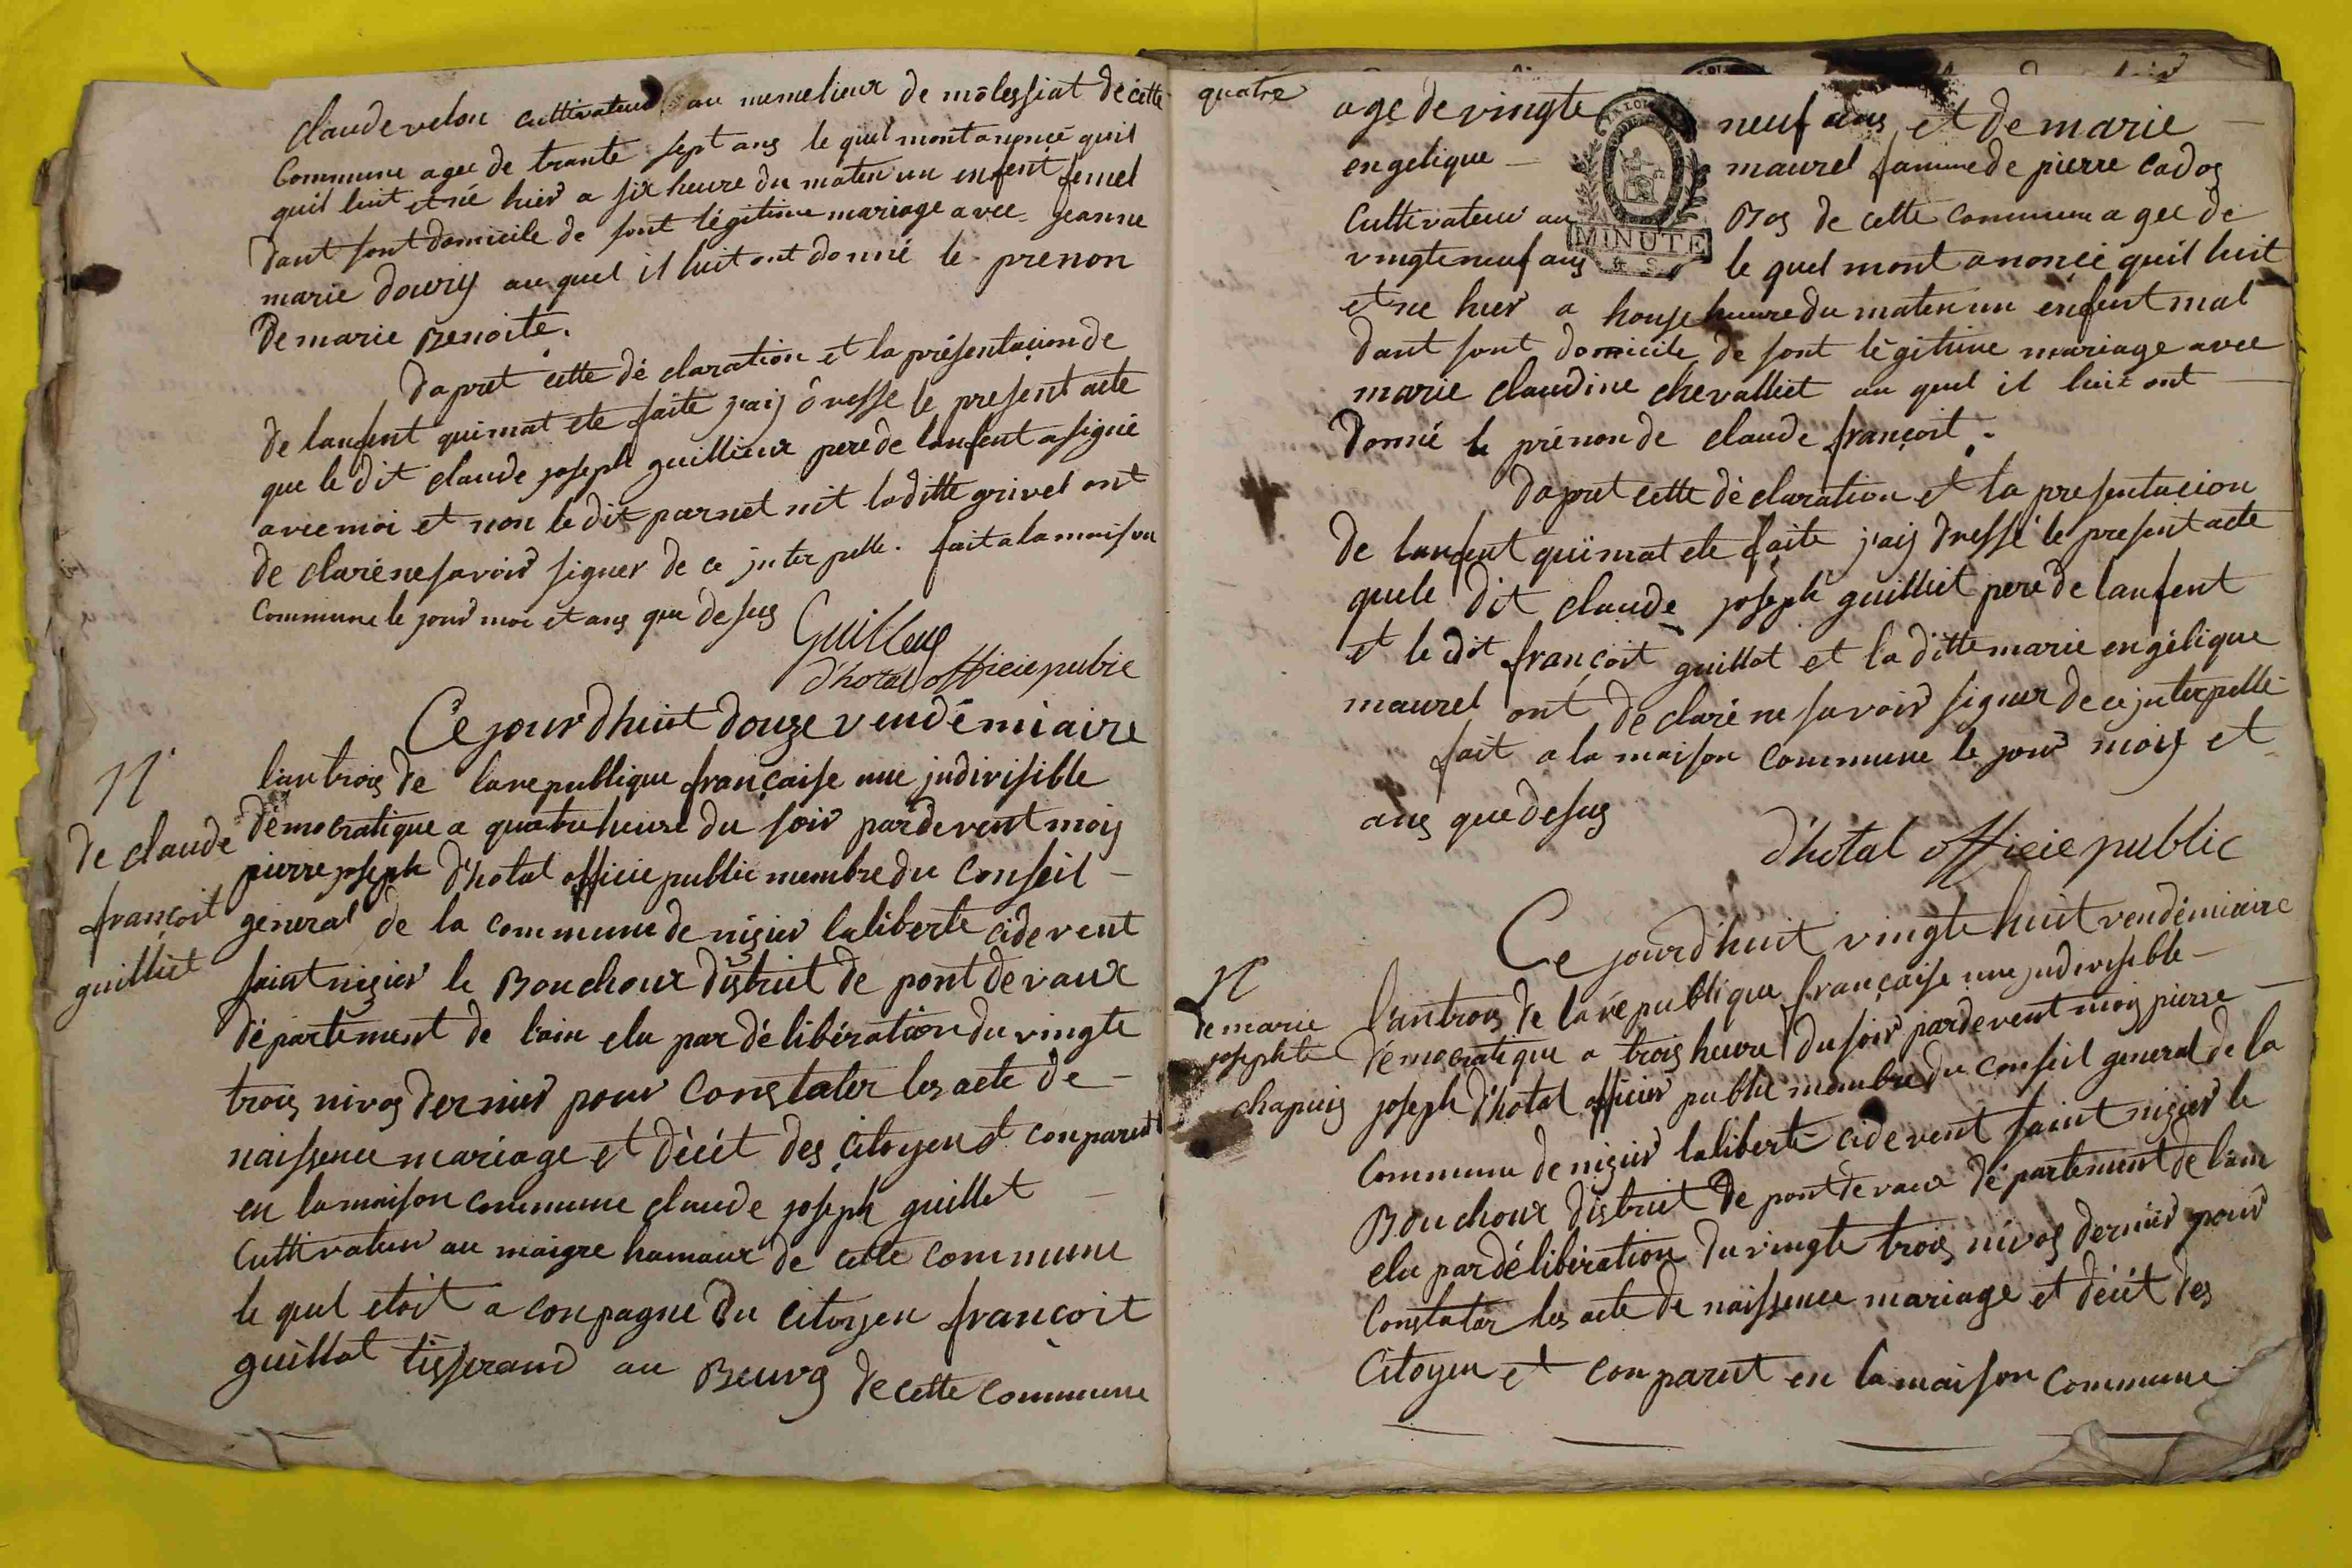 claude velon cultivateur au meme lieux de molessiat de cette
Commune agee de trante sept ans le quel mont anoncé quil
quil luit et né hier a six heure du maten un enfent femel
dant sont domicile de sont légitime mariage avec jeanne
marie douriy au quel il luit ont donné le prenon
de marie Benoite.
dapret cette dé claration et la présentacion de
de lanfent quimat ete faite j'aij dresse le present acte
que le dit claude joseph guillieux pere de lanfent a signé
avec moi et non le dit parnet nit la ditte grivel ont
de claré ne savoir signer de ce jnter pelle. fait a la maison
Commune le jour moi et ans que desus
Guilleux
d'hotal officie public
Ce jourdhuit douze vendémiaire
N
de claude
françoit
guilliet
l'an trois de la republique française une jndivisible
démocratique a quatre heure du soir pardevent moij
pierre joseph d'hotal officie public membre du Conseil
géneral de la commune de nizier la liberte cidevent
saint nizier le Bouchoux district de pont devaux
département de l'ain elu par délibération du vingte
trois nivos dernier pour Constater les acte de
naissence mariage et décét des citoyen et conparut
en la maison commune claude joseph guillet
Cultivateur au maigre hamaux de cette commune
le quel etoit a conpagné du citoyen françoit
guillot tisserand au Beurg de cette commune
quatre
age de vingte neuf ans et de marie
engelique maurel famme de pierre cados
Cultivateur au Bos de cette commune a gee de
MINUTE
4 S
vingte neuf ans le quel mont anoncé quil luit
et ne hier a honze heure du maten un enfent mal
dant sont domicile de sont légitime mariage avec
marie claudine chevalliet au quel il luit ont
Donné le prénon de claude françoit.
dapret cette dé claration et la presentacion
de lanfent quimat ete faite j'aij dressé le present acte
que le dit claude joseph guilliet pere de lanfent
et le dit françoit guillot et la ditte marie engélique
maurel ont de claré ne savoir signer de ce jnterpellé
fait a la maison Commune le jour moij et
ans que desus
d'hotal officie public
Ce jourd'huit vingte huit vendémiaire
N
de marie
josephte
chapuis
l'an trois de la ré publique française une jndivisible
démocratique a trois heure du soir pardevent moij pierre
joseph d'hotal officier public membre du conseil general de la
Commune de nizier la liberté cidevent saint nizier le
Bouchoux district de pont de vaux dé partement de l'ain
elu par délibération du vingte trois nivos dernier pour
Constater les acte de naissence mariage et décét des
Citoyen et conparut en la maison commune